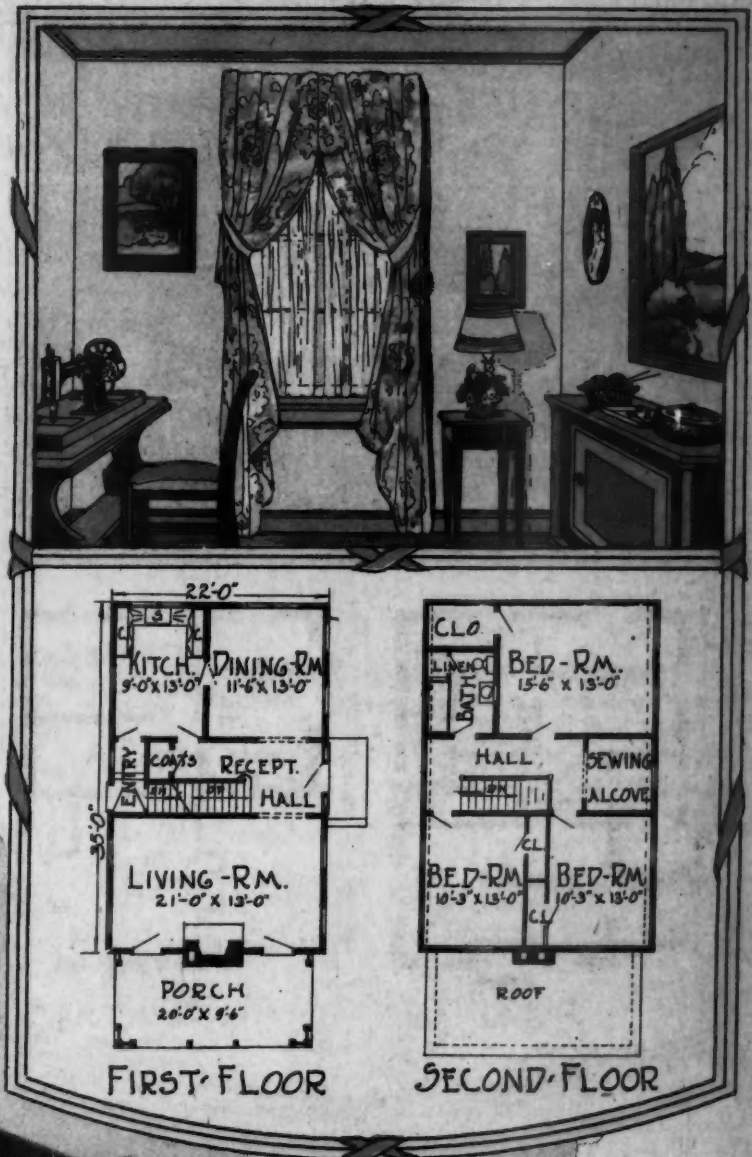 22'-0"
S
C
C
KITCH.
9'-0" X 13'-0"
DINING-RM
11'-6" X 13'-0"
ENTRY
COATS
RECEPT.
HALL
DN
UP
35'-0"
LIVING-RM.
21'-0" X 13'-0"
PORCH
20'-0" X 9'-6"
FIRST-FLOOR
CLO.
LINEN
BATH
BED-RM.
15'-6" X 13'-0"
HALL
SEWING
ALCOVE
DN
CL.
BED-RM
10'-3" X 13'-0"
BED-RM
10'-3" X 13'-0"
CL
ROOF
SECOND-FLOOR